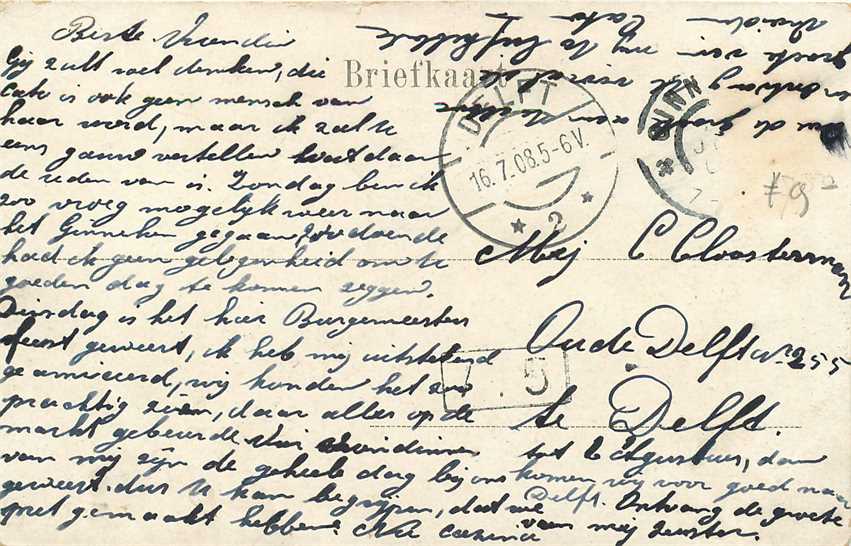 Beste Vriendin
Gij zult wel denken, die
Cato is ook geen mensch van
haar word, maar ik zal U
eens gauw vertellen wat daar
de reden van is. Zondag ben ik
zoo vroeg mogelijk weer naar
het Ginneken gegaan, zodoende
had ik geen gelegenheid om U
goeden dag te komen zeggen.
Dinsdag is het hier Burgemeesters
feest geweest, ik heb mij uitstekend
geamuseerd, wij konden het zoo
prachtig zien, daar alles op de
markt gebeurde. Vier vriendinnen
van mij zijn de geheele dag bij ons
geweest. dus U kan begrijpen, dat we
pret gemaakt hebben. Nu
tot 2 Augustus, dan
komen wij voor goed naar
Delft. Ontvang de groete
van mij zuster.
en ontvang
vriendin
Cato
Briefkaart
DELFT
16.7.08.5-6V.
2
GINN
5
f 9
Mej C Cloosterman
Oude Delft No 255
te Delft.